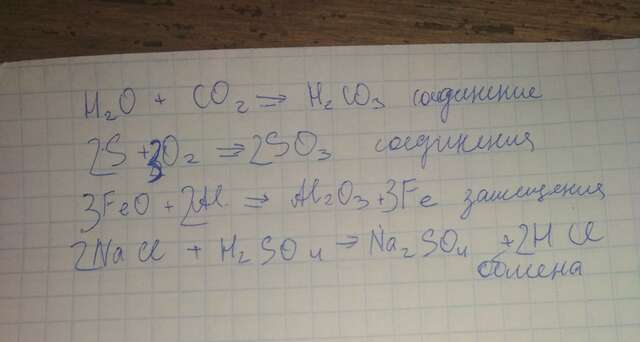 H₂O + CO₂ ⇒ H₂CO₃ соединение
2S + 3O₂ ⇒ 2SO₃ соединения
3FeO + 2Al ⇒ Al₂O₃ + 3Fe замещения
2NaCl + H₂SO₄ → Na₂SO₄ + 2HCl
обмена